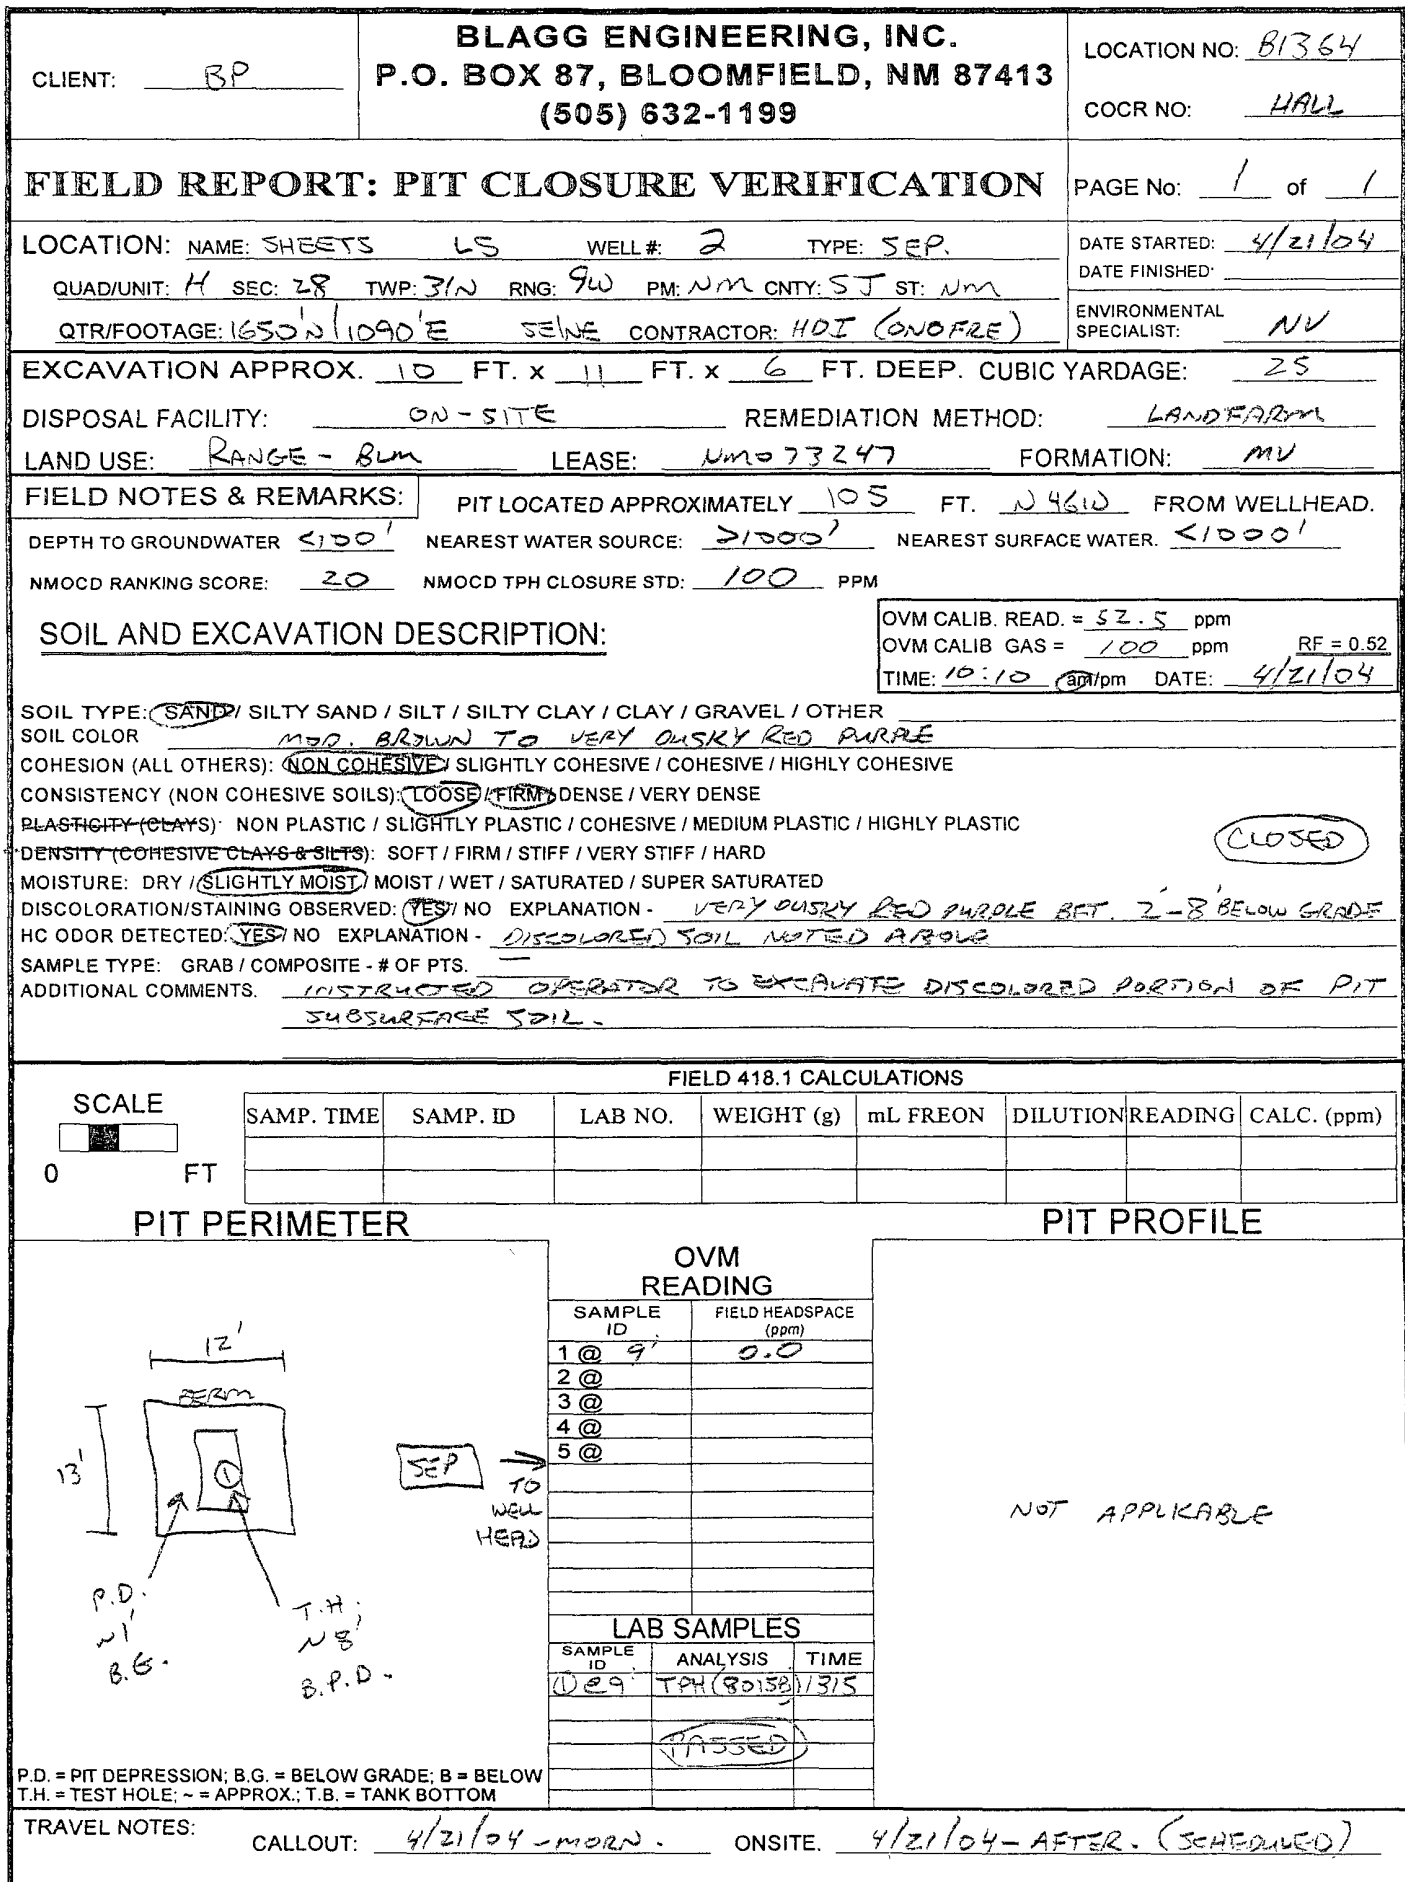 CLIENT: BP
BLAGG ENGINEERING, INC.
P.O. BOX 87, BLOOMFIELD, NM 87413
(505) 632-1199
LOCATION NO: B1364
COCR NO: HALL
FIELD REPORT: PIT CLOSURE VERIFICATION
PAGE No: 1 of 1
LOCATION: NAME: SHEETS LS WELL #: 2 TYPE: SEP.
QUAD/UNIT: H SEC: 28 TWP: 31N RNG: 9W PM: NM CNTY: SJ ST: NM
QTR/FOOTAGE: 1650'N/1090'E SE/NE CONTRACTOR: HDI (ONOFRE)
DATE STARTED: 4/21/04
DATE FINISHED:
ENVIRONMENTAL
SPECIALIST: NV
EXCAVATION APPROX. 10 FT. x 11 FT. x 6 FT. DEEP. CUBIC YARDAGE: 25
DISPOSAL FACILITY: ON-SITE REMEDIATION METHOD: LANDFARM
LAND USE: RANGE - BLM LEASE: NM073247 FORMATION: MV
FIELD NOTES & REMARKS: PIT LOCATED APPROXIMATELY 105 FT. N46W FROM WELLHEAD.
DEPTH TO GROUNDWATER <100' NEAREST WATER SOURCE: >1000' NEAREST SURFACE WATER. <1000'
NMOCD RANKING SCORE: 20 NMOCD TPH CLOSURE STD: 100 PPM
SOIL AND EXCAVATION DESCRIPTION:
OVM CALIB. READ. = 52.5 ppm
OVM CALIB GAS = 100 ppm RF = 0.52
TIME: 10:10 am/pm DATE: 4/21/04
SOIL TYPE: SAND / SILTY SAND / SILT / SILTY CLAY / CLAY / GRAVEL / OTHER
SOIL COLOR MOD. BROWN TO VERY DUSKY RED PURPLE
COHESION (ALL OTHERS): NON COHESIVE / SLIGHTLY COHESIVE / COHESIVE / HIGHLY COHESIVE
CONSISTENCY (NON COHESIVE SOILS): LOOSE / FIRM / DENSE / VERY DENSE
PLASTICITY (CLAYS): NON PLASTIC / SLIGHTLY PLASTIC / COHESIVE / MEDIUM PLASTIC / HIGHLY PLASTIC
DENSITY (COHESIVE CLAYS & SILTS): SOFT / FIRM / STIFF / VERY STIFF / HARD
CLOSED
MOISTURE: DRY / SLIGHTLY MOIST / MOIST / WET / SATURATED / SUPER SATURATED
DISCOLORATION/STAINING OBSERVED: YES / NO EXPLANATION - VERY DUSKY RED PURPLE BET. 2'-8' BELOW GRADE
HC ODOR DETECTED: YES / NO EXPLANATION - DISCOLORED SOIL NOTED ABOVE
SAMPLE TYPE: GRAB / COMPOSITE - # OF PTS. —
ADDITIONAL COMMENTS. INSTRUCTED OPERATOR TO EXCAVATE DISCOLORED PORTION OF PIT
SUBSURFACE SOIL.
FIELD 418.1 CALCULATIONS
SCALE
0 FT
SAMP. TIME SAMP. ID LAB NO. WEIGHT (g) mL FREON DILUTION READING CALC. (ppm)
PIT PERIMETER
12'
BERM
13'
1
SEP
TO
WELL
HEAD
P.D.
~1'
B.G.
T.H.
~8'
B.P.D.
P.D. = PIT DEPRESSION; B.G. = BELOW GRADE; B = BELOW
T.H. = TEST HOLE; ~ = APPROX.; T.B. = TANK BOTTOM
OVM
READING
SAMPLE ID FIELD HEADSPACE (ppm)
1 @ 9' 0.0
2 @
3 @
4 @
5 @
LAB SAMPLES
SAMPLE ID ANALYSIS TIME
①@9' TPH (8015B) 1315
PASSED
PIT PROFILE
NOT APPLICABLE
TRAVEL NOTES: CALLOUT: 4/21/04 - MORN. ONSITE. 4/21/04 - AFTER. (SCHEDULED)